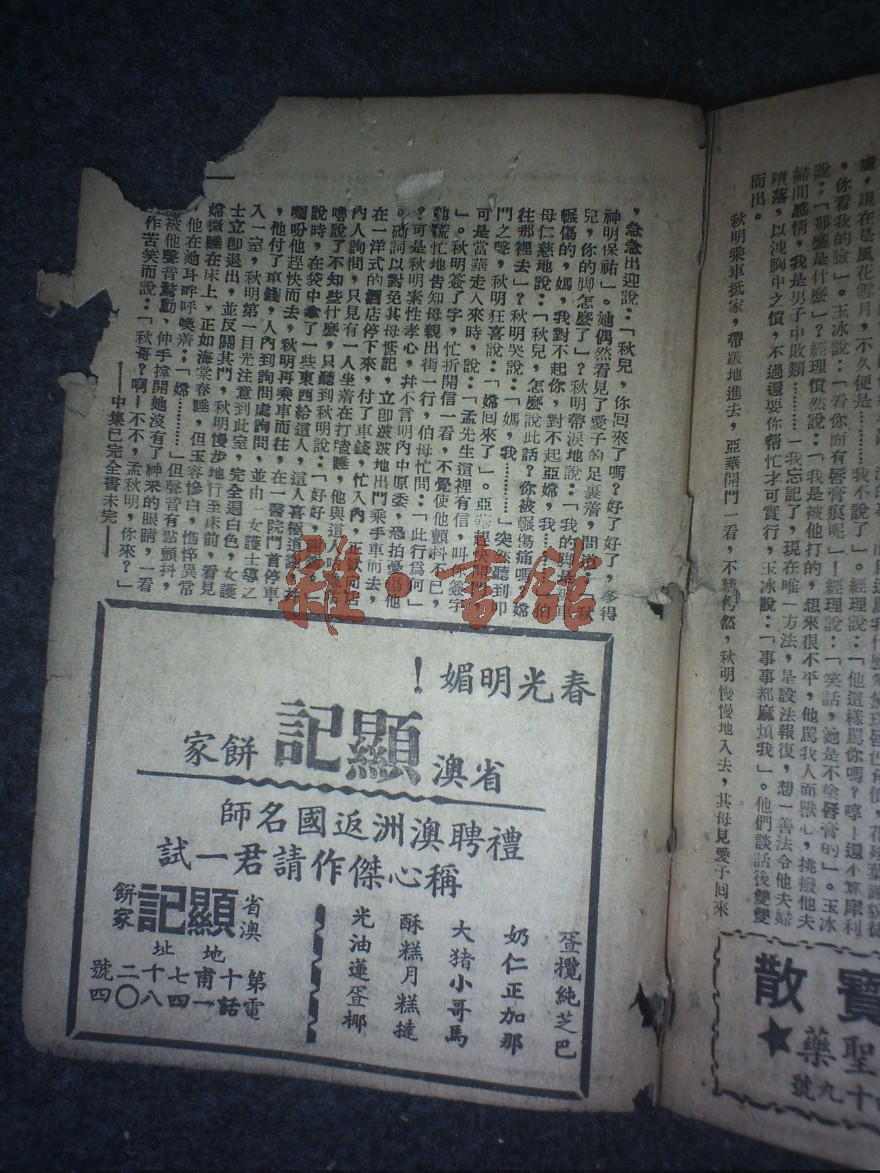 說：「那麼是什麼」？經理憤然說：「我是被他打的，想來很不平，他罵我人面獸心，挑撥他夫
婦間感情，我是男子中敗類………」我忘記了，現在唯一方法，是設法報復，想一善法令他夫婦
墮落，以洩胸中之憤，不過還要你幫忙才可實行，玉冰說：「事事都麻煩我」。他們談話後雙雙
而出。
秋明乘車抵家，帶跛地進去，亞華開門一看，不禁愕然，秋明慢慢地入去，其母見愛子回來
寶散
聖藥
十九號
，急急出迎說：「秋兒，你回來了嗎？好了好了，多得
神明保祐」。她偶然看見了愛子的足裹着，問道：「秋
兒，你的脚怎麼了」？秋明帶淚地說：「我的脚
輾傷的，媽，我對不起你，對不起亞嫦，我……」伯
母仁慈地說：「秋兒，怎麼說此話？你被輾傷痛嗎？嫦
往那裡去」？秋明哭說：「媽，我………」突然聽到叩
門之聲，秋明狂喜說：「嫦回來了」。亞華趕快開門，
可是當華走入來時，說：「孟先生這裡有信，叫你簽字
」。秋明簽了字，忙折開信一看，不覺使他顫抖不已，
慌忙地告知母親出街一行，伯母忙問：「此行爲何」
？可是秋明素性孝心，幷不言明內中原委，恐拍憂傷他
。砌詞以對免其母惦記，立卽跛跛地出門乘手車而去，
在一洋式的酒店停下來，付了車錢，忙入內，正欲向店
內人詢問，只見有一人坐着在打瞌睡，他與這人
嚕說了不知些什麼，只聽到秋明說：「好好，
說時，在袋中拿了一些東西給這人，這人喜極道謝，并
囑吩他趕快而去，秋明再乘車而往，在一醫院門首停車
，他付了車錢，人內到詢問處詢問，並由一女護士導之
入一室，秋明第一目光注意到此室，完全週白色，女護
士立卽退出，並反關其門，秋明慢步地行至床前，看見
嫦微睡在床上，正如海棠春睡，但玉容慘白，憔悴異常
他在她耳畔呼喚着：「嫦………」但聲音有點顫抖，
被他聲音驚動，伸手撑開她沒有了神釆的眼睛，一看
作苦笑而說：「秋哥？啊！不不，孟秋明，你來？」
——中集已完全書未完——
春光明媚！
省澳顯記餅家
禮聘澳洲返國名師
稱心傑作請君一試
蛋欖純芝巴
奶仁正加那
大猪小哥馬
酥糕月糕撻
光油蓮蛋椰
省澳顯記餅家
地址
第十甫七十二號
電話一四八〇四
雜·書館